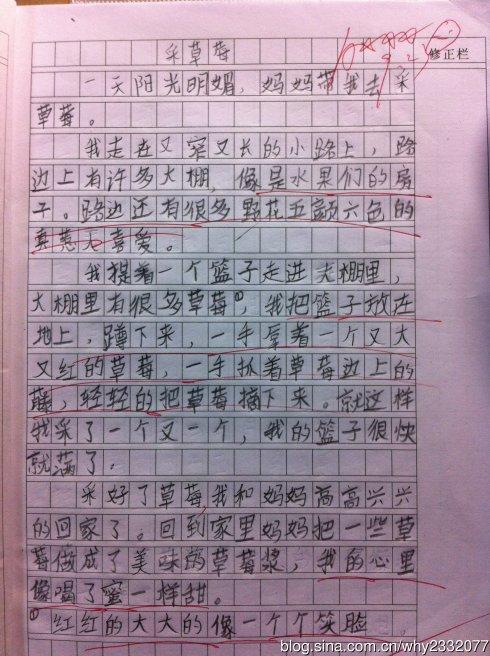 采草莓
修正栏
一天阳光明媚，妈妈带我去采
草莓。
我走在又窄又长的小路上，路
边上有许多大棚，像是水果们的房
子。路边还有很多野花五颜六色的
真惹人喜爱。
我提着一个篮子走进大棚里，
大棚里有很多草莓①，我把篮子放在
地上，蹲下来，一手拿着一个又大
又红的草莓，一手抓着草莓边上的
藤，轻轻的把草莓摘下来。就这样
我采了一个又一个，我的篮子很快
就满了.
采好了草莓，我和妈妈高高兴兴
的回家了。回到家里妈妈把一些草
莓做成了美味的草莓浆，我的心里
像喝了蜜一样甜。
①红红的大大的像一个个笑脸
blog.sina.com.cn/why2332077